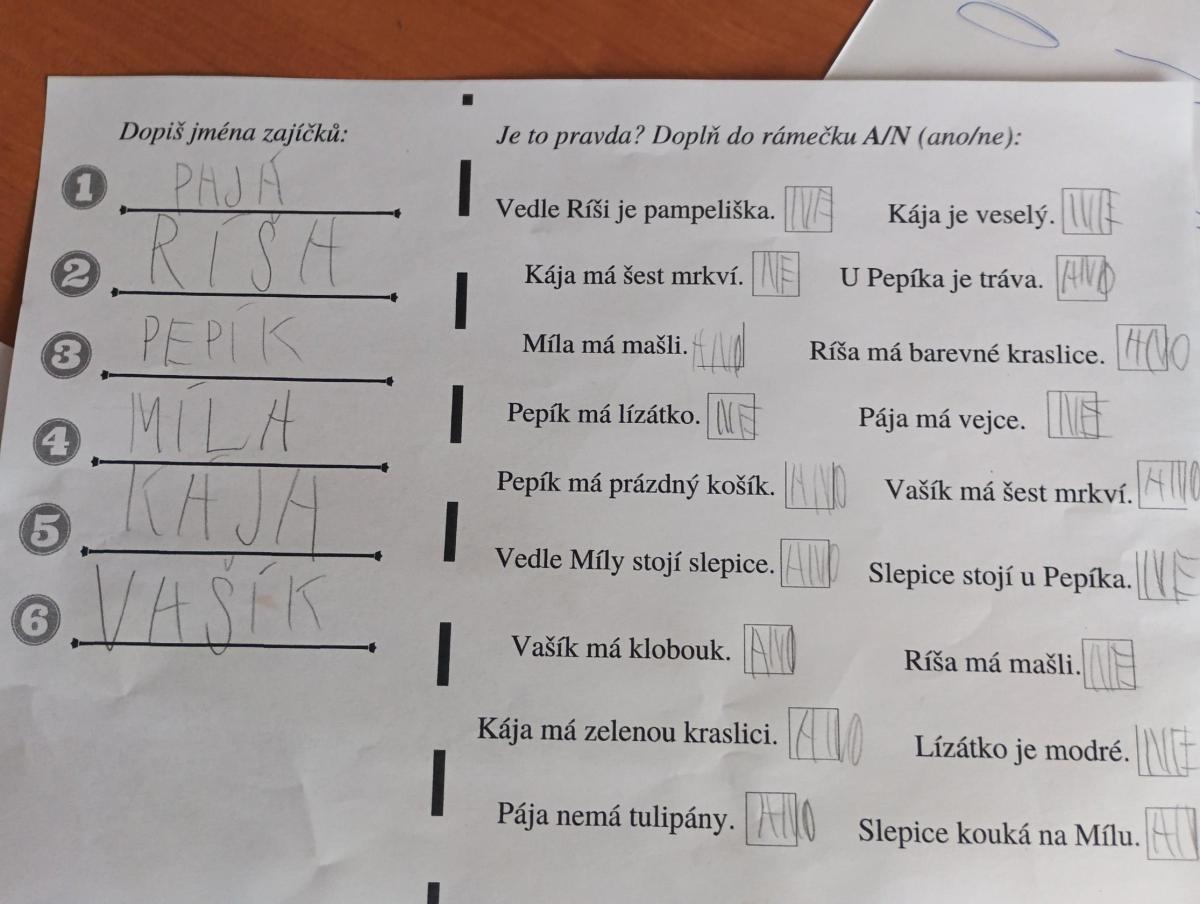 Dopiš jména zajíčků:
1 PAJÁ
2 RÍŠA
3 PEPÍK
4 MÍLA
5 KÁJA
6 VAŠÍK
Je to pravda? Doplň do rámečku A/N (ano/ne):
Vedle Ríši je pampeliška. NE Kája je veselý. NE
Kája má šest mrkví. NE U Pepíka je tráva. ANO
Míla má mašli. ANO Ríša má barevné kraslice. ANO
Pepík má lízátko. NE Pája má vejce. NE
Pepík má prázdný košík. ANO Vašík má šest mrkví. ANO
Vedle Míly stojí slepice. ANO Slepice stojí u Pepíka. NE
Vašík má klobouk. ANO Ríša má mašli. NE
Kája má zelenou kraslici. ANO Lízátko je modré. NE
Pája nemá tulipány. ANO Slepice kouká na Mílu. AN